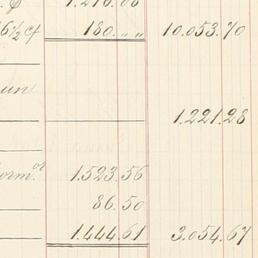 1.216.08
6½ cf 180.,, 10.053.70
1.221.28
orm.º 1.523.56
86.50
1.444.61 3.054.67